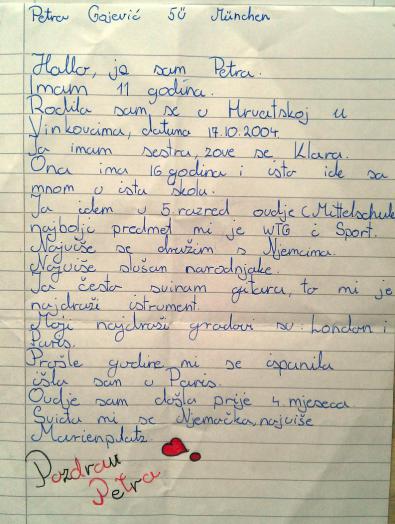 Petra Gajević 5ü München
Hallo, ja sam Petra.
Imam 11 godina.
Rodila sam se u Hrvatskoj u
Vinkovcima, datuma 17.10.2004.
Ja imam sestra, zove se Klara.
Ona ima 16 godina i isto ide sa
mnom u ista škola.
Ja idem u 5. razred ovdje (Mittelschule
najbolji predmet mi je WTG i Sport.
Najviše se družim s Njemcima.
Najviše slušan narodnjake.
Ja često svinam gitaru, to mi je
najdraži istrument.
Moji najdraži gradovi su: London i
Paris.
Prošle godine, mi se ispunila
išla san u Paris.
Ovdje sam došla prije 4. mjeseca
Sviđa mi se Njemačka, najviše
Marienplatz.
Pozdrav
Petra